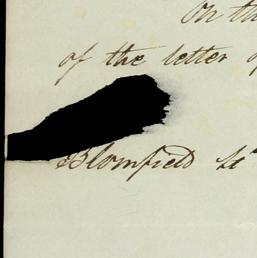 On th
of the letter o
Blomfield to